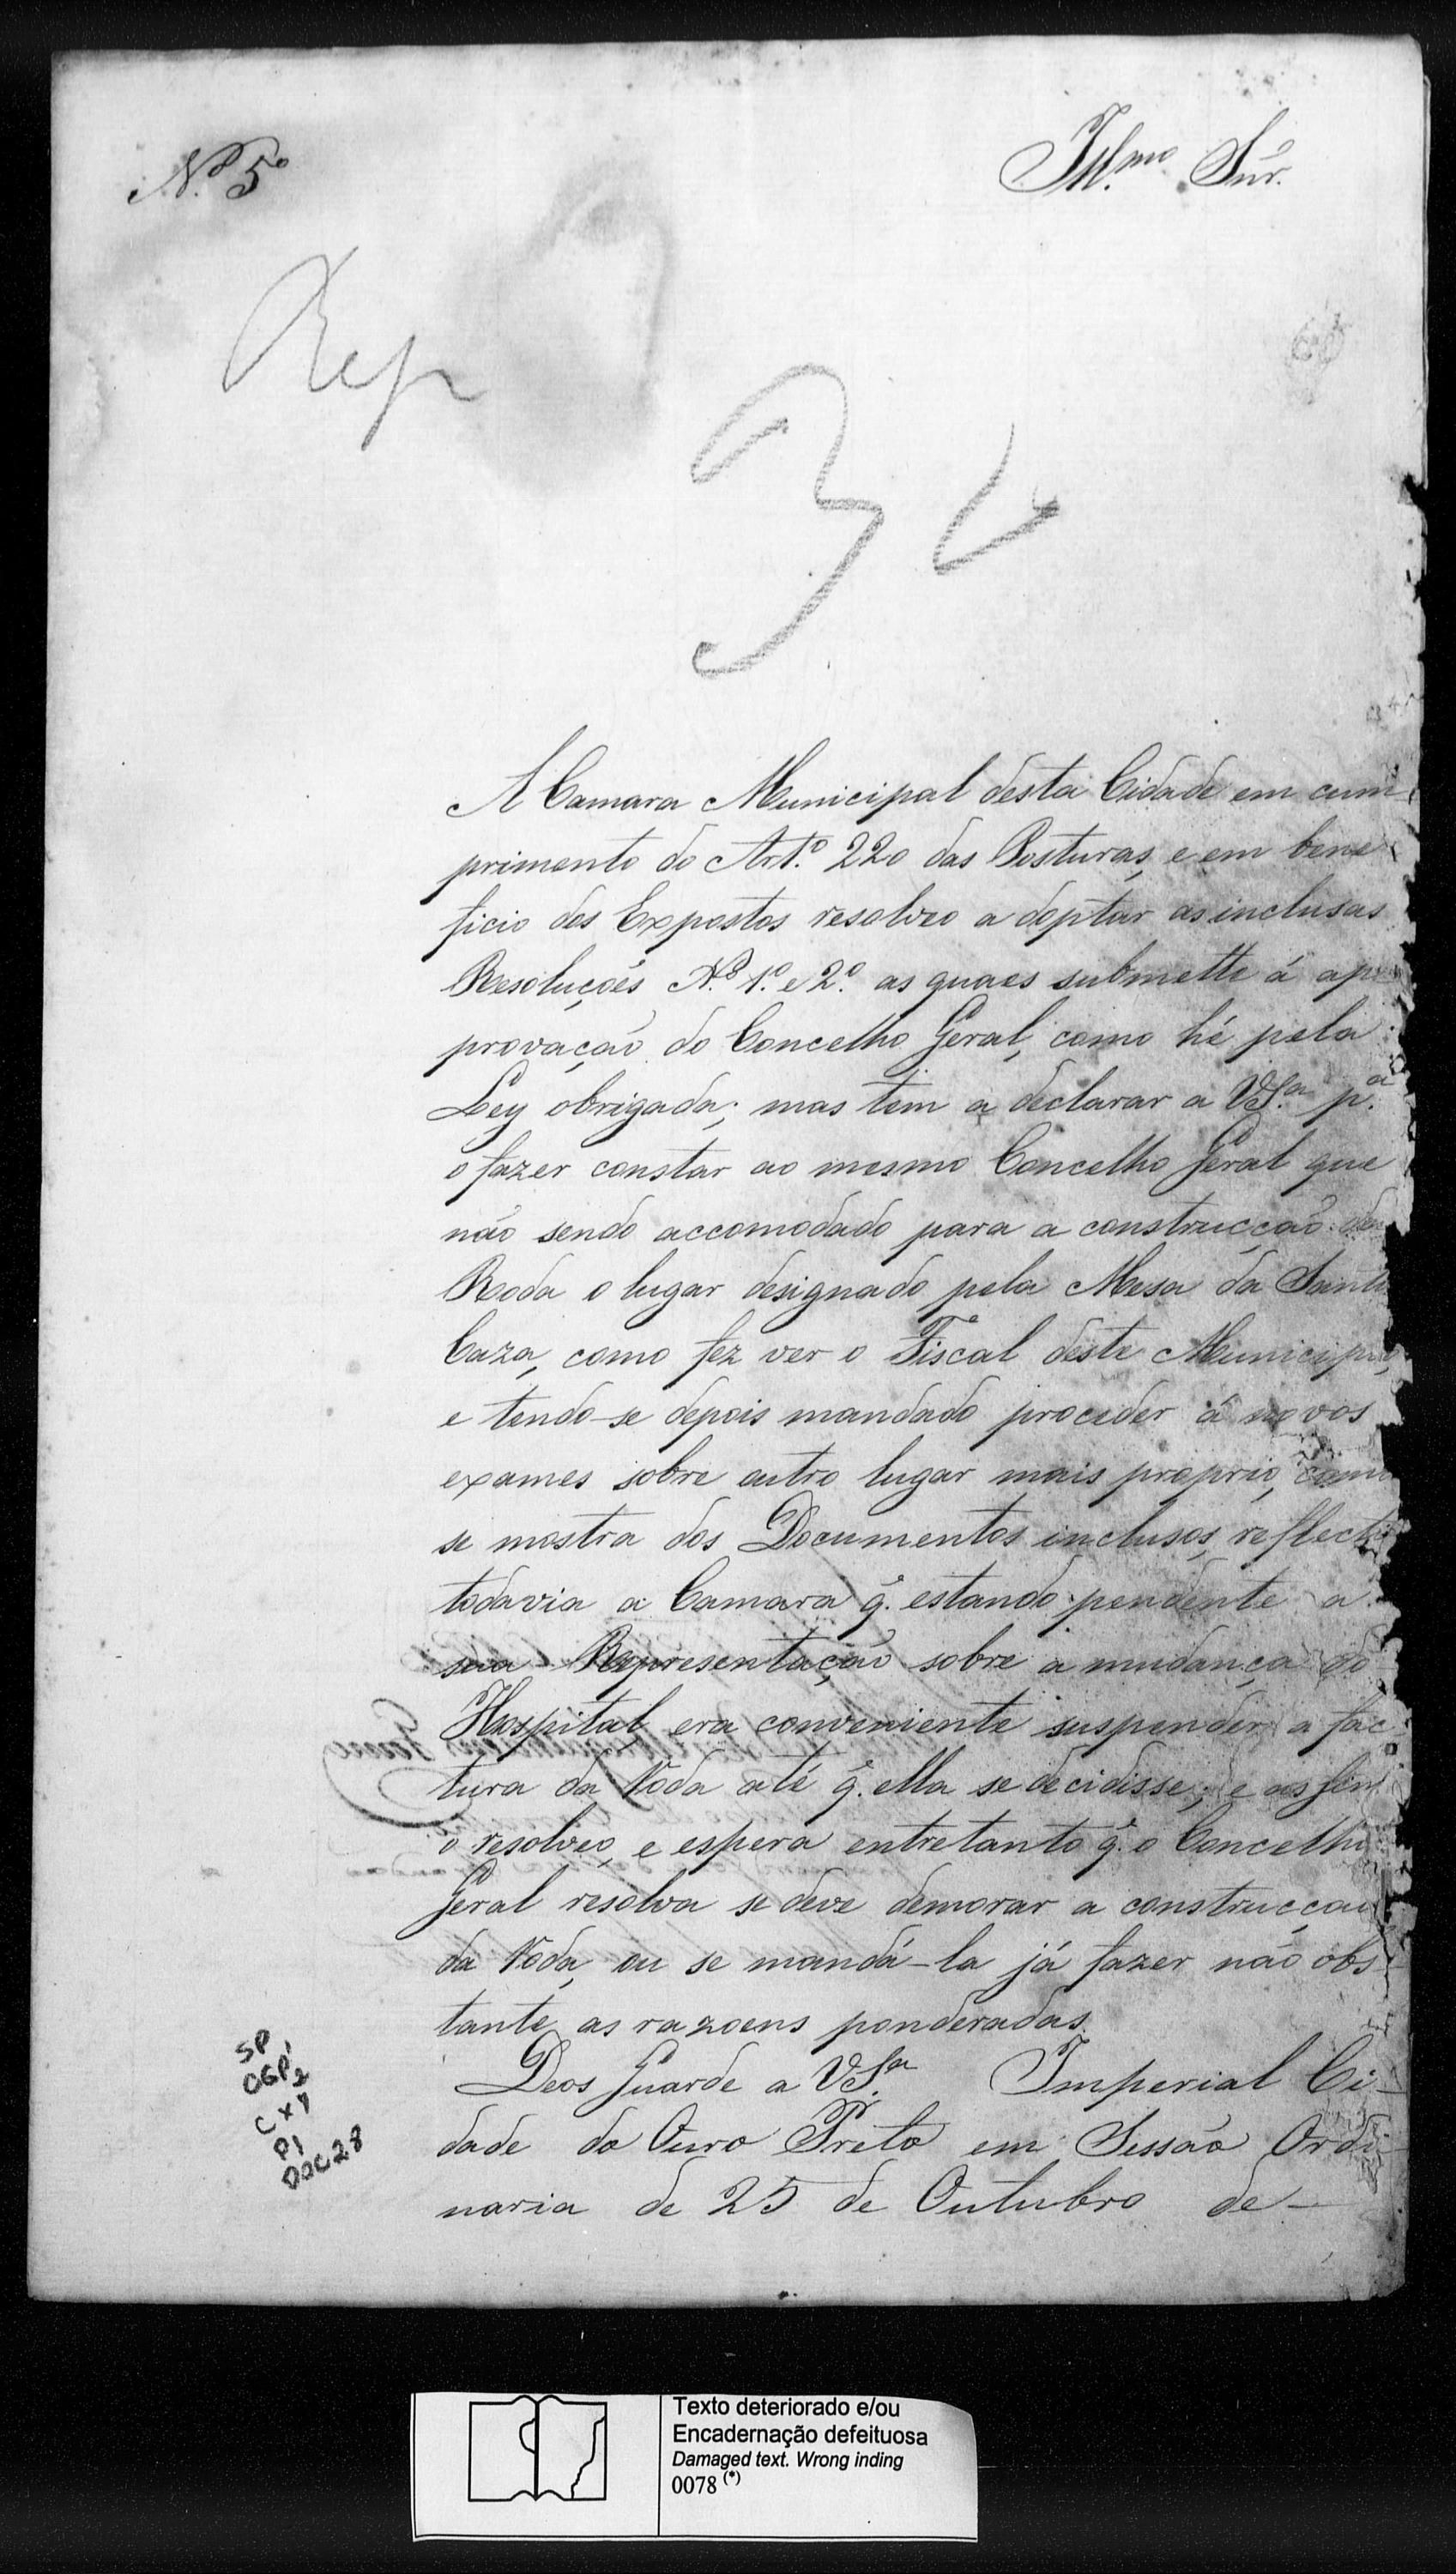 N.º 5º
Ill.mo Snr.
Rep
60
3
A Camara Municipal desta Cidade em cum-
primento do Art.º 220 das Posturas, e em bene
ficio dos Expostos resolveo a doptar as inclusas
Resoluçoẽs N.os 1.º e 2.º as quaes submette á ap
provação do Concelho Geral, como hé pela
Ley obrigada; mas tem a declarar a VS.ª p.ª
o fazer constar ao mesmo Concelho Geral que
não sendo accomodado para a construcção da
Roda o lugar designado pela Mesa da Santa
Caza, como fez ver o Fiscal deste Municipio,
e tendo-se depois mandado proceder á novos
exames sobre outro lugar mais proprio, como
se mostra dos Documentos inclusos, reflecte
todavia a Camara q̃. estando pendente a
sua Representação sobre a mudança do
Hospital, era conveniente suspender a fac
tura da Roda até q̃. ella se decidisse; e assim
o resolveo, e espera entretanto q̃. o Concelho
Geral resolva se deve demorar a construcçaõ
da Roda, ou se mandá-la já fazer não obs-
tante as razoens ponderadas.
Deos Guarde a VS.ª Imperial Ci-
dade do Ouro Preto em Sessão Ordi-
naria de 25 de Outubro de-
SP
CGP1
Cx1
P1
DOC28
Texto deteriorado e/ou
Encadernação defeituosa
Damaged text. Wrong inding
0078 (*)